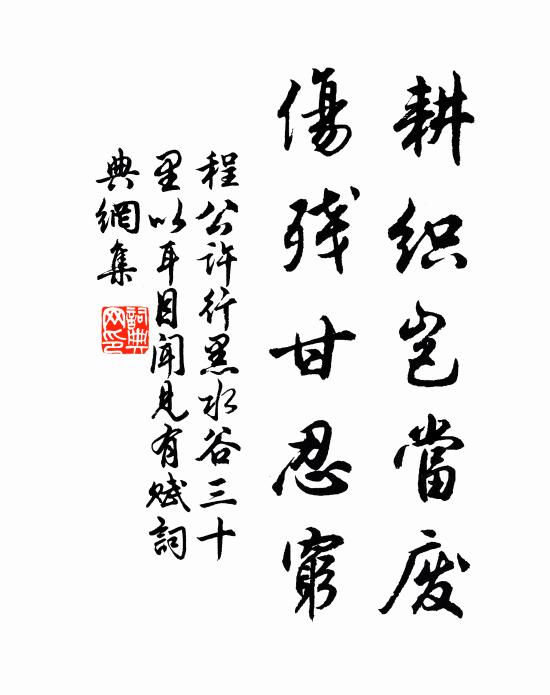 耕織豈當廢
傷残甘忍窮
程公許行黑水谷三十
里以耳目聞見有賦詞
典網集
詞典
网印